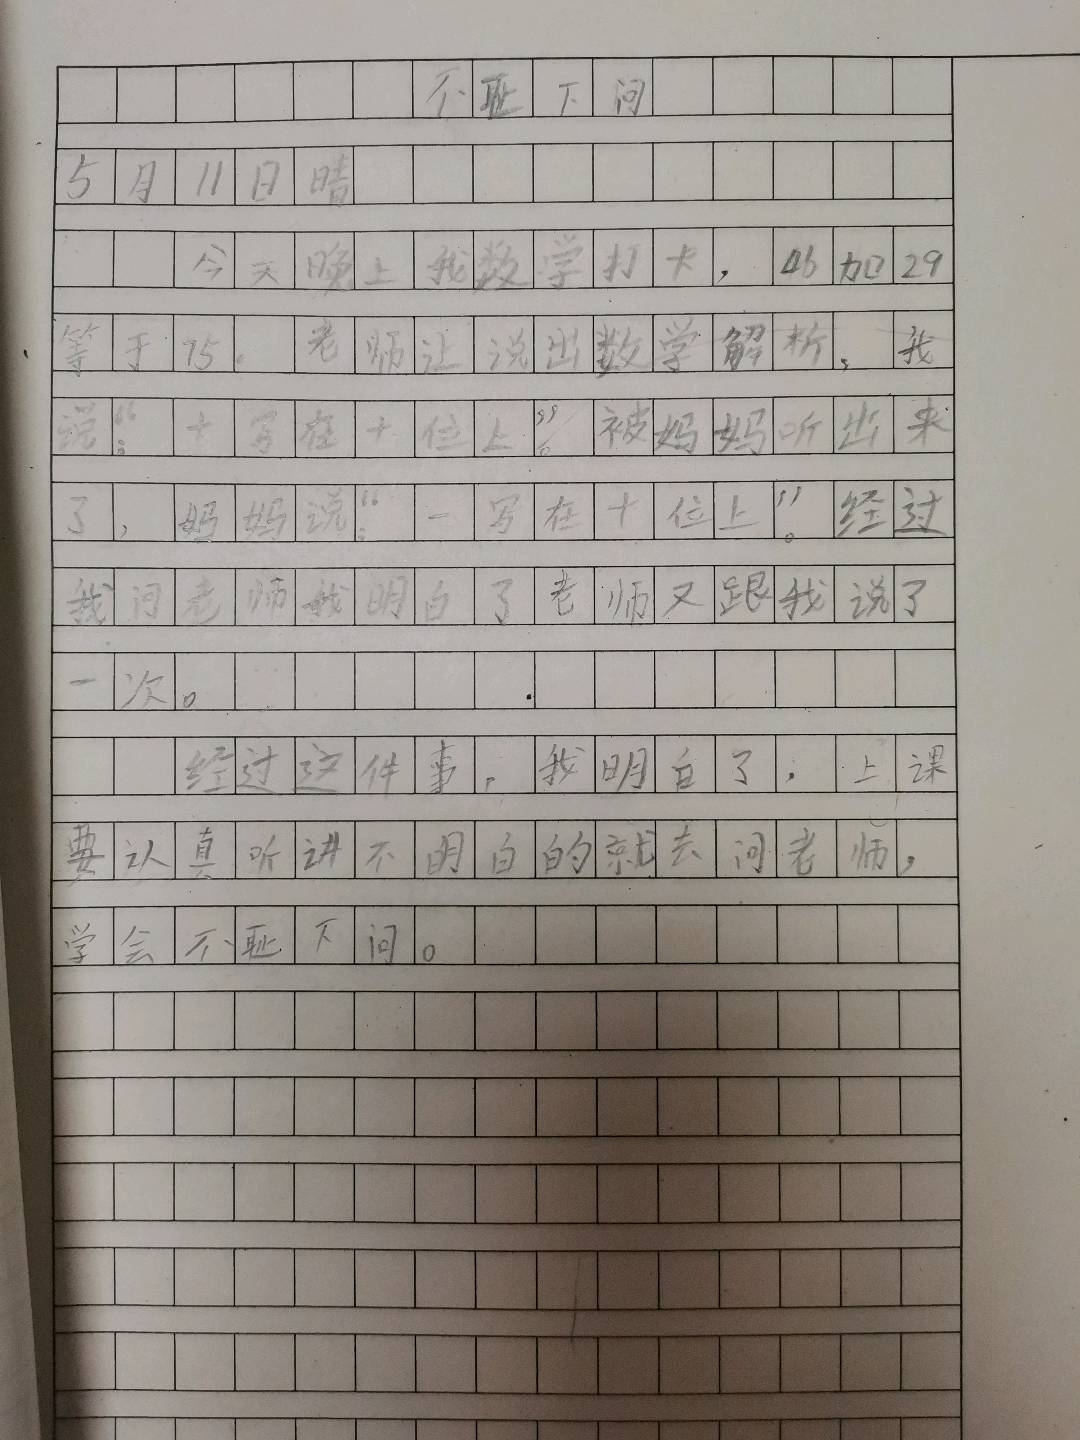 不耻下问
5月11日晴
今天晚上我数学打卡，46加29
等于75。老师让说出数学解析，我
说：“十写在十位上”。被妈妈听出来
了，妈妈说：“一写在十位上”。经过
我问老师我明白了老师又跟我说了
一次。
经过这件事，我明白了，上课
要认真听讲不明白的就去问老师，
学会不耻下问。